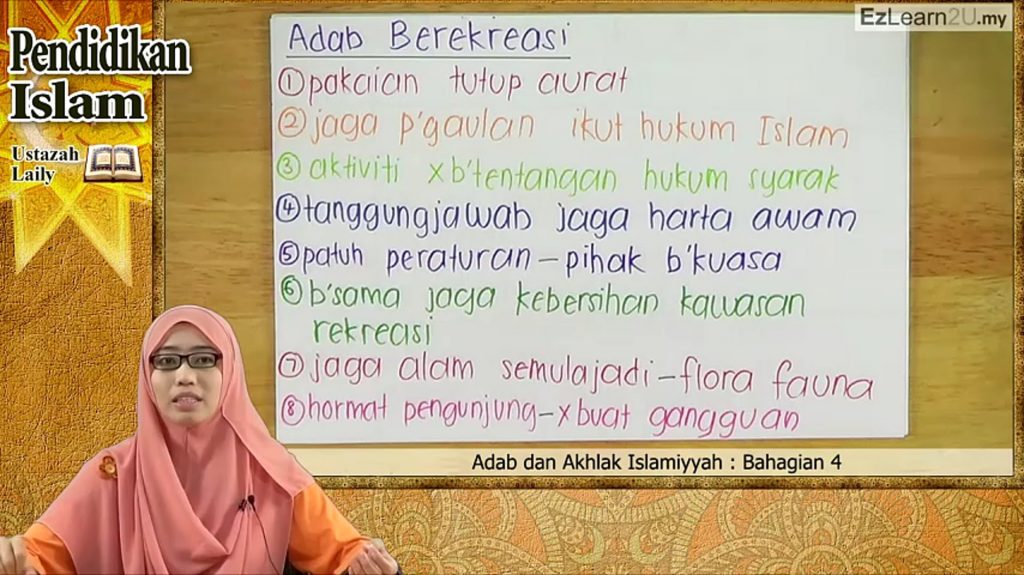 Pendidikan
Islam
Ustazah
Laily
EzLearn2U.my
Adab Berekreasi
① pakaian tutup aurat
② jaga p'gaulan ikut hukum Islam
③ aktiviti x b'tentangan hukum syarak
④ tanggungjawab jaga harta awam
⑤ patuh peraturan - pihak b'kuasa
⑥ b'sama jaga kebersihan kawasan
rekreasi
⑦ jaga alam semulajadi - flora fauna
⑧ hormat pengunjung - x buat gangguan
Adab dan Akhlak Islamiyyah : Bahagian 4